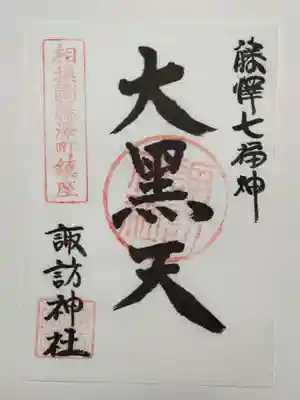 藤澤七福神
大黑天
相模國藤澤町鎮座
諏訪神社